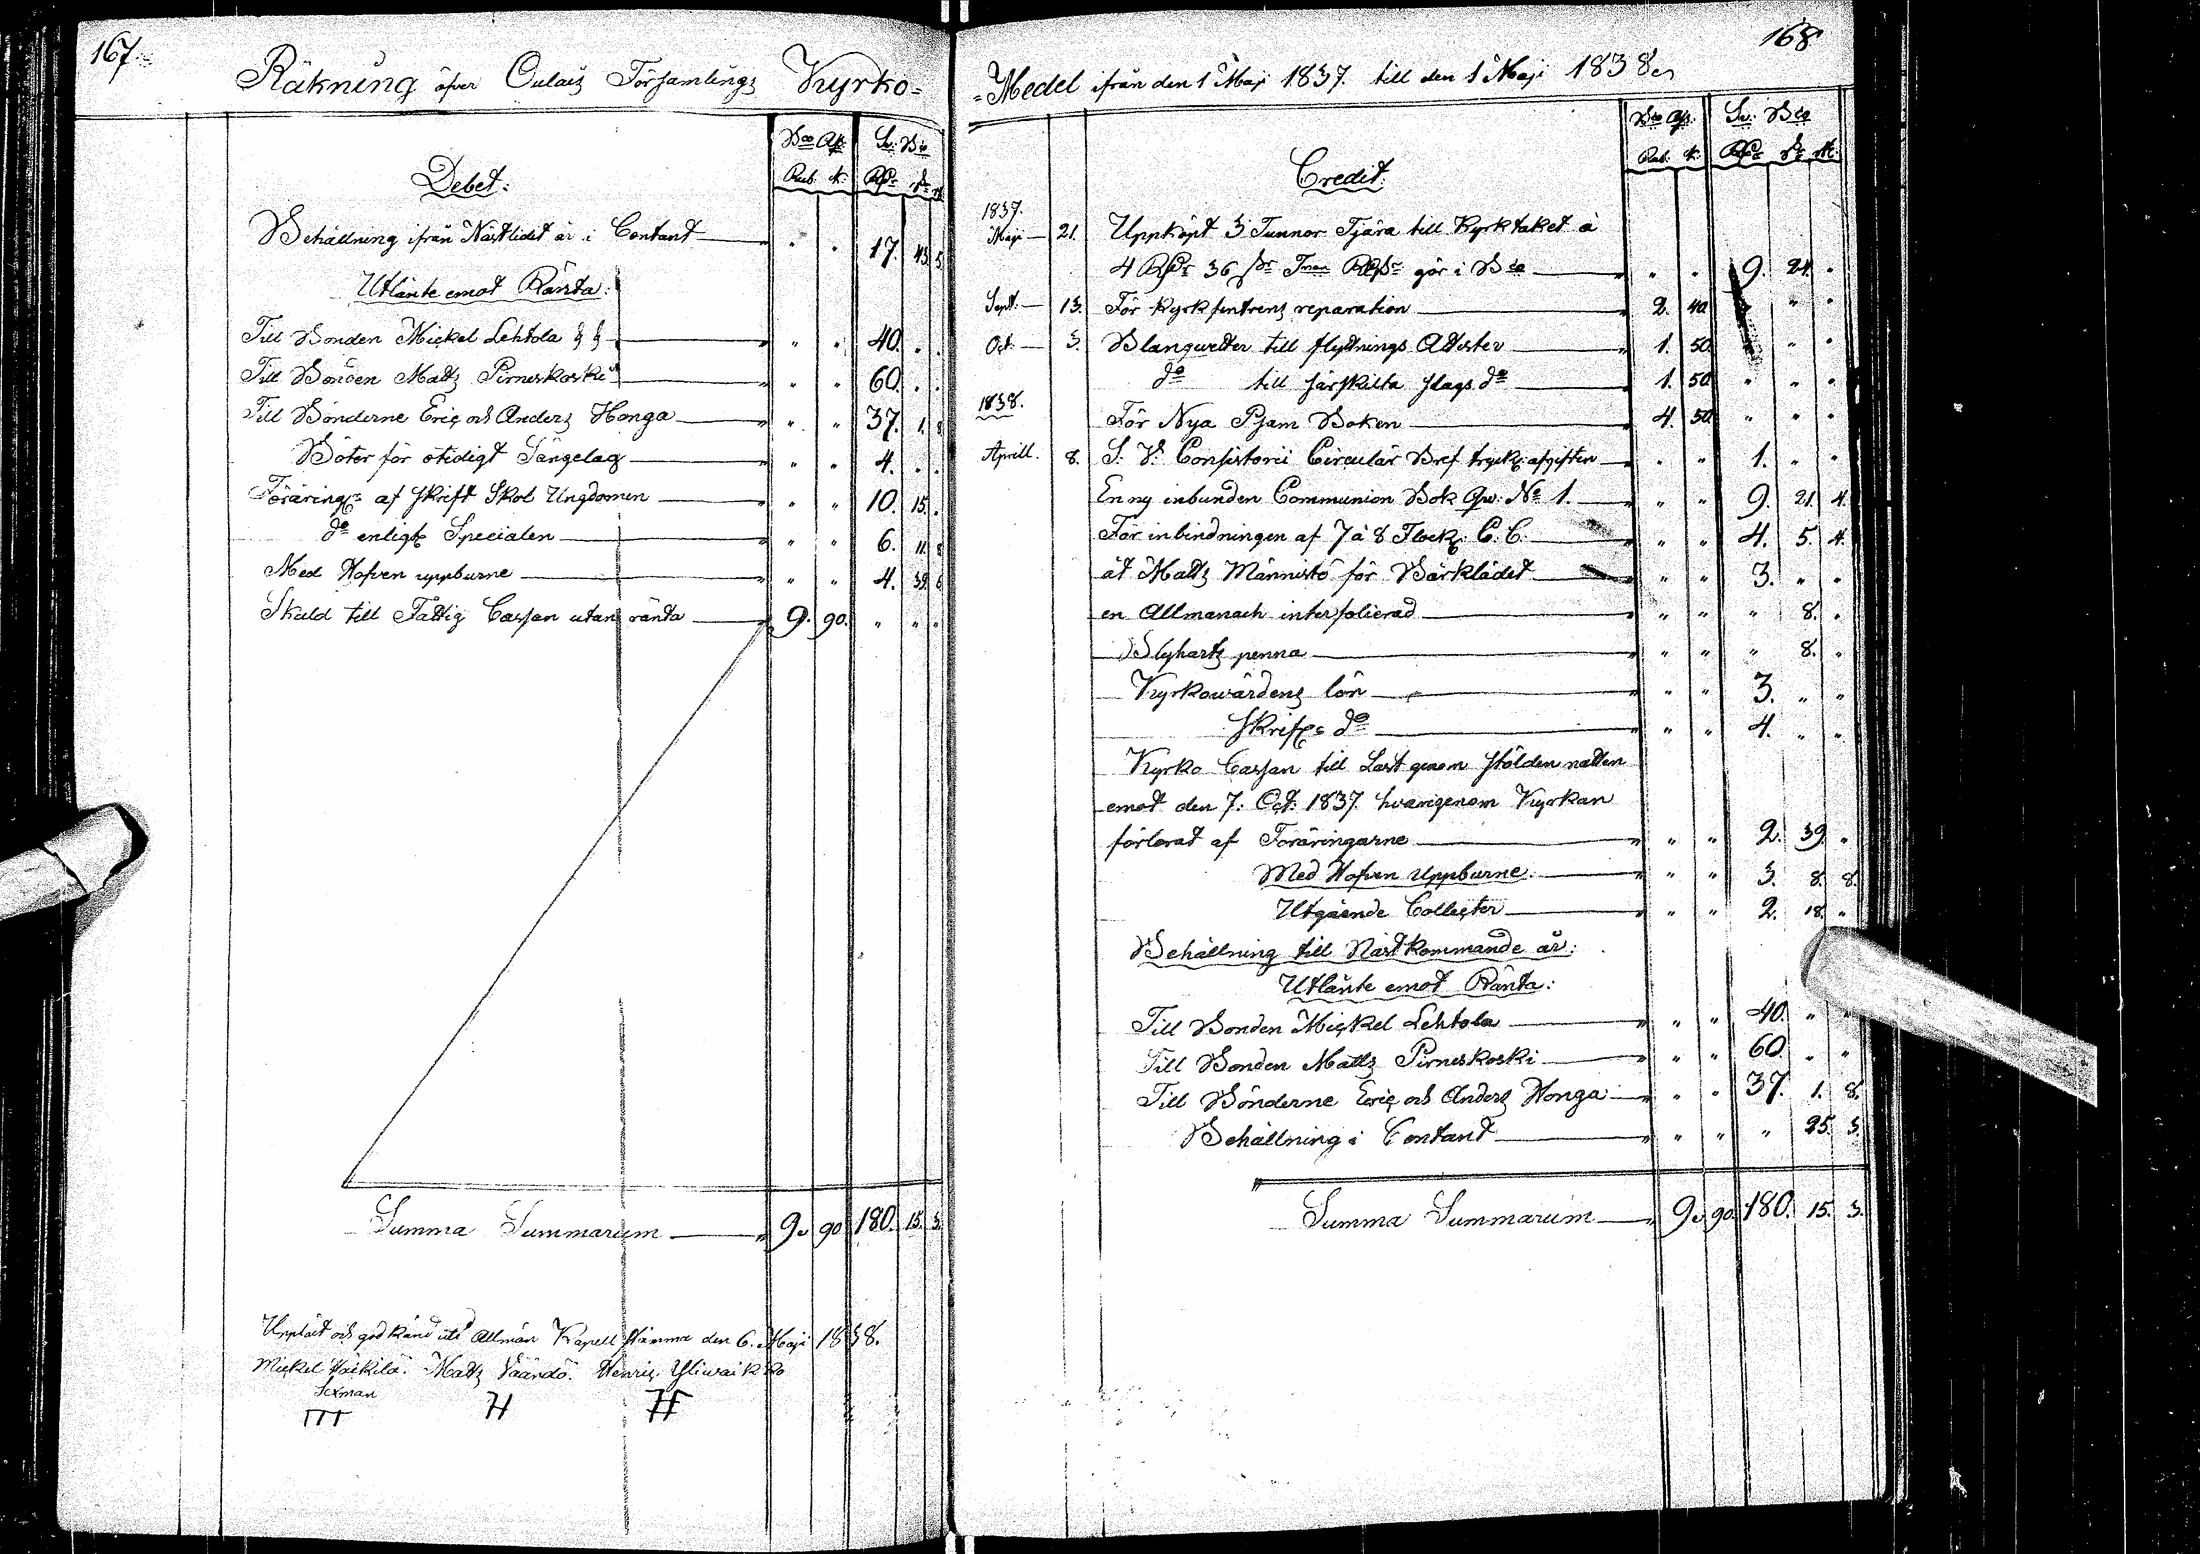 167.
Räkning öfver Oulais Församlings Kyrko-
Debet:
Bco Ass: Sv: Bco
Rub. k: Rdr sk r
Behållning ifrån Nästlidit år i Contant " " 17. 43. 3.
Utlånte emot Ränta:
Till Bonden Mickel Lehtola § § " " 40. " "
Till Bonden Matts Pirneskoski " " 60. " "
Till Bönderne Eric och Anders Honga " " 37. 1. 8.
Böter för otidigt Sängelag " " 4. " "
Föräringr af skrift Skol Ungdomen " " 10. 15. "
do enligt Specialen " " 6. 11. 8
Med Hofven uppburne " " 4. 39. 6
Skuld till Fattig Cassan utan ränta 9. 90. " " "
Summa Summarum 9. 90 180. 15. 3.
Uppläst och godkänd uti Allmän Kapell stämma den 6. Maji 1838.
Mickel Haikila. Matts Väändö. Henric Yliwaikko
Sexman
168
-Medel ifrån den 1 Maji 1837. till den 1 Maji 1838.
Credit:
Bco Ass. Sv: Bco
Rub. k: Rdr sk r:
1837.
Maji 21. Uppköpt 3 Tunnor Tjära till Kyrktaket à
4 Rdr 36 sk Tnan Rgsr gör i Bco " " 9. 24. "
Sept. 13. För kyrkfentrens reparation 2. 40 " " "
Oct. 3. Blanquetter till flyttnings Attester 1. 50 " " "
do till särskilta slags do 1. 50 " " "
1838.
För Nya Psam Boken 4. 50 " " "
Aprill. 8. S. V. Consistorii Circulär Bref tryck: afgiften " " 1. " "
En ny inbunden Communion Bok Qv: No 1. " " 9. 21. 4.
För inbindningen af 7 à 8 Flock: C. C. " " 4. 5. 4.
åt Matts Männistö för Bårklädet " " 3. " "
en Allmanach interfolierad " " " 8. "
Blyharts penna " " " 8. "
Kyrkowärdens lön " " 3. " "
skrifr do " " 4. " "
Kyrko Cassan till Last genom stölden natten
emot den 7. Oct: 1837. hvarigenom Kyrkan
förlorat af Föräringarne " " 2. 39. "
Med Hofven Uppburne " " 3. 8. 8.
Utgående Collecter " " 2. 18. "
Behållning till Nästkommande år:
Utlånte emot Ränta:
Till Bonden Mickel Lehtola " " 40. " "
Till Bonden Matts Pirneskoski " " 60. " "
Till Bönderne Eric och Anders Honga " " 37. 1. 8.
Behållning i Contant " " " 25. 3.
Summa Summarum 9. 90. 180. 15. 3.